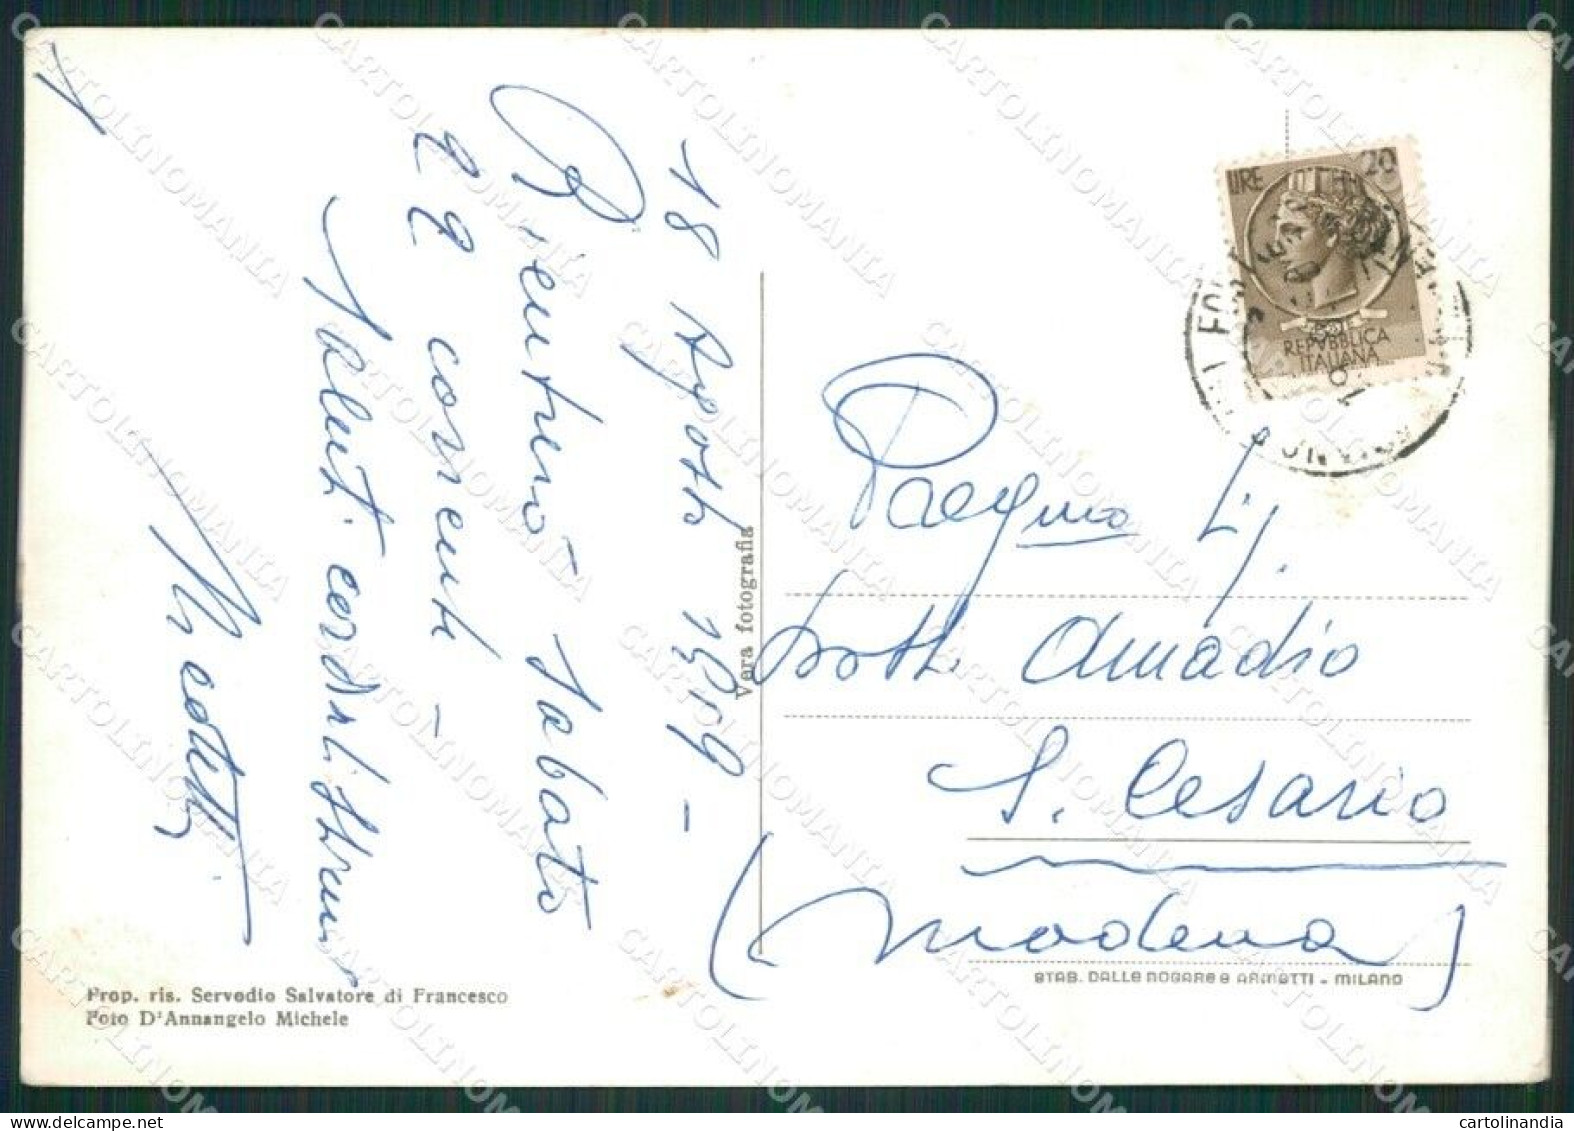 18 Agosto 1959 -
Rientrerò sabato
22 corrente -
Saluti cordialissimi
Vera fotografia
Prop. ris. Servedio Salvatore di Francesco
Foto D'Annangelo Michele
LIRE 20
REPVBBLICA
ITALIANA
Dott. Amadio
S. Cesario
(Modena)
STAB. DALLE NOGARE e ARMETTI - MILANO
CARTOLINOMANIA
cartolinandia